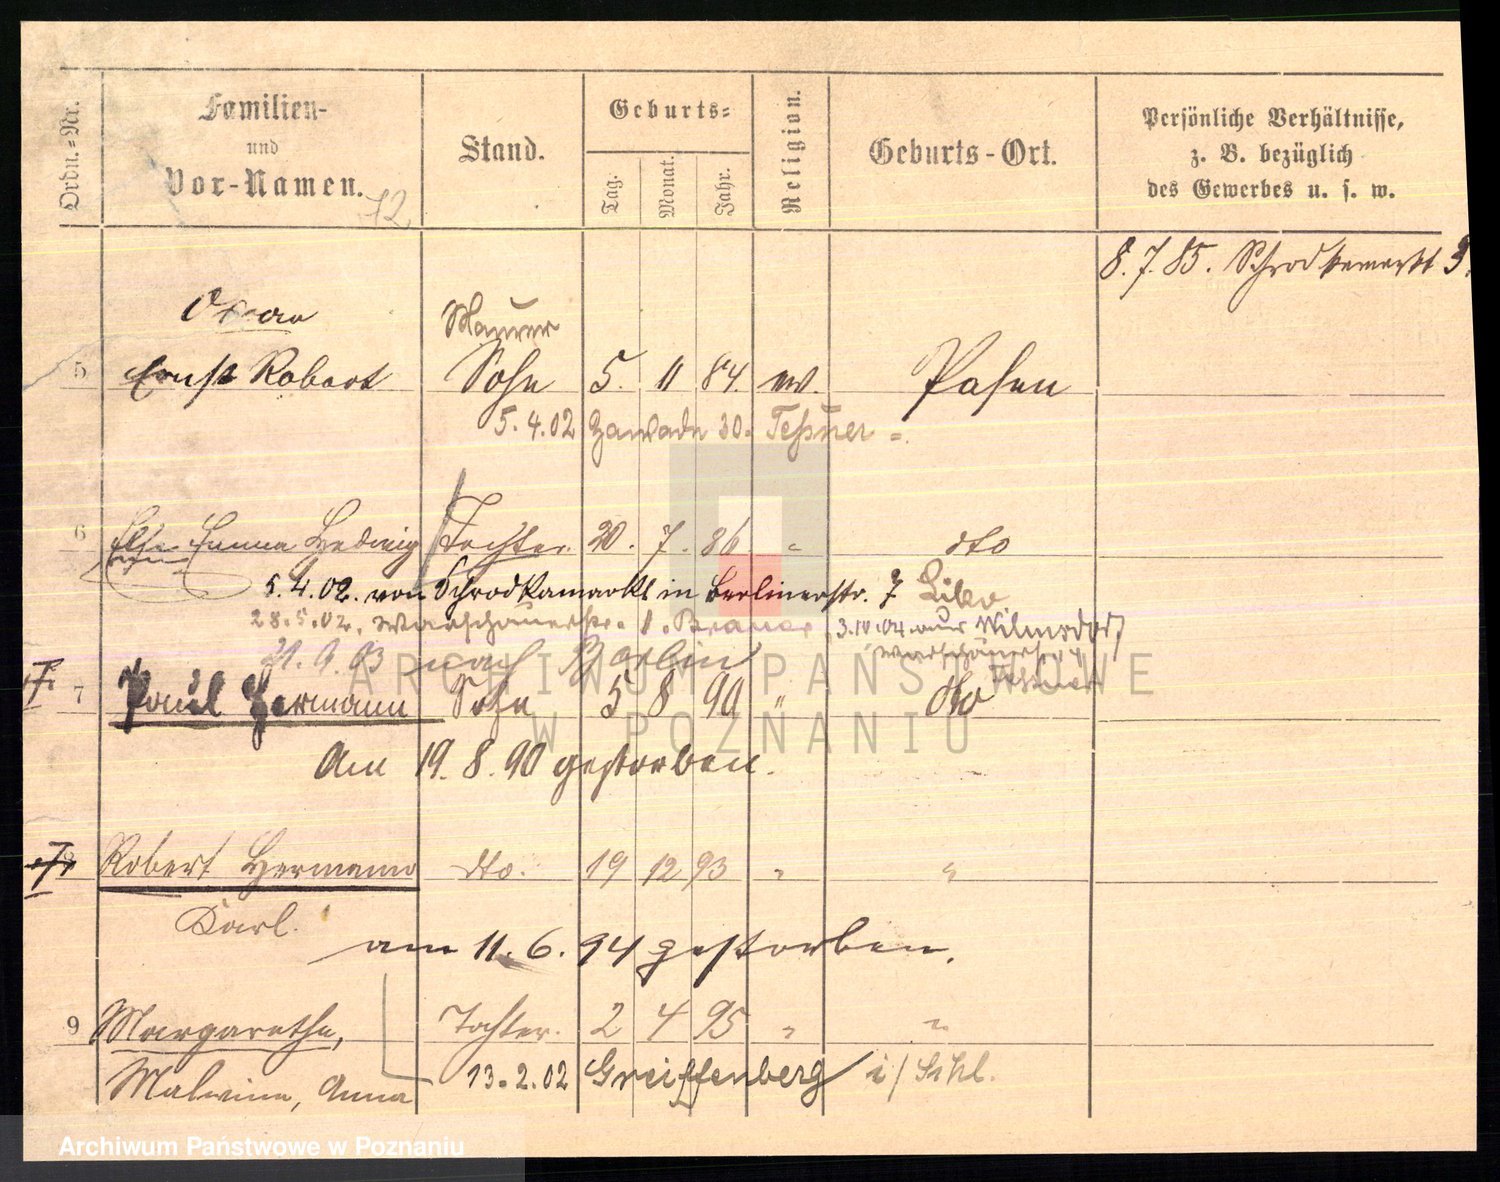 Ordn.=Nr.
Familien-
und
Vor-Namen.
72
Stand.
Geburts=
Tag.
Monat.
Jahr.
Religion.
Geburts-Ort.
Persönliche Verhältnisse,
z. B. bezüglich
des Gewerbes u. s. w.
8. 7. 85. Schrodkamarkt 3.
Oscar
Maurer
5 Ernst Robert Sohn 5. 11 84. ev. Posen
5.4.02 Zawade 30. Teßmer
6 Else Emma Hedwig Tochter. 20. 7. 86 " dto
5.4.02. von Schrodkamarkt in Berlinerstr. 7
28.5.02. Warschauerstr. 1. 3.10.04. aus Wilmersdorf
21.9.03 nach Berlin Warschauerstr.
7 Paul Hermann Sohn 5 8 90 " dto
Am 19. 8. 90 gestorben.
8 Robert Hermann dto. 19 12 93 " "
Karl.
am 11. 6. 94 gestorben.
9 Margarethe, Tochter. 2 4 95 " "
Malwine, Anna 13.2.02 Greiffenberg i/Schl.
ARCHIWUM PAŃSTWOWE
W POZNANIU
Archiwum Państwowe w Poznaniu